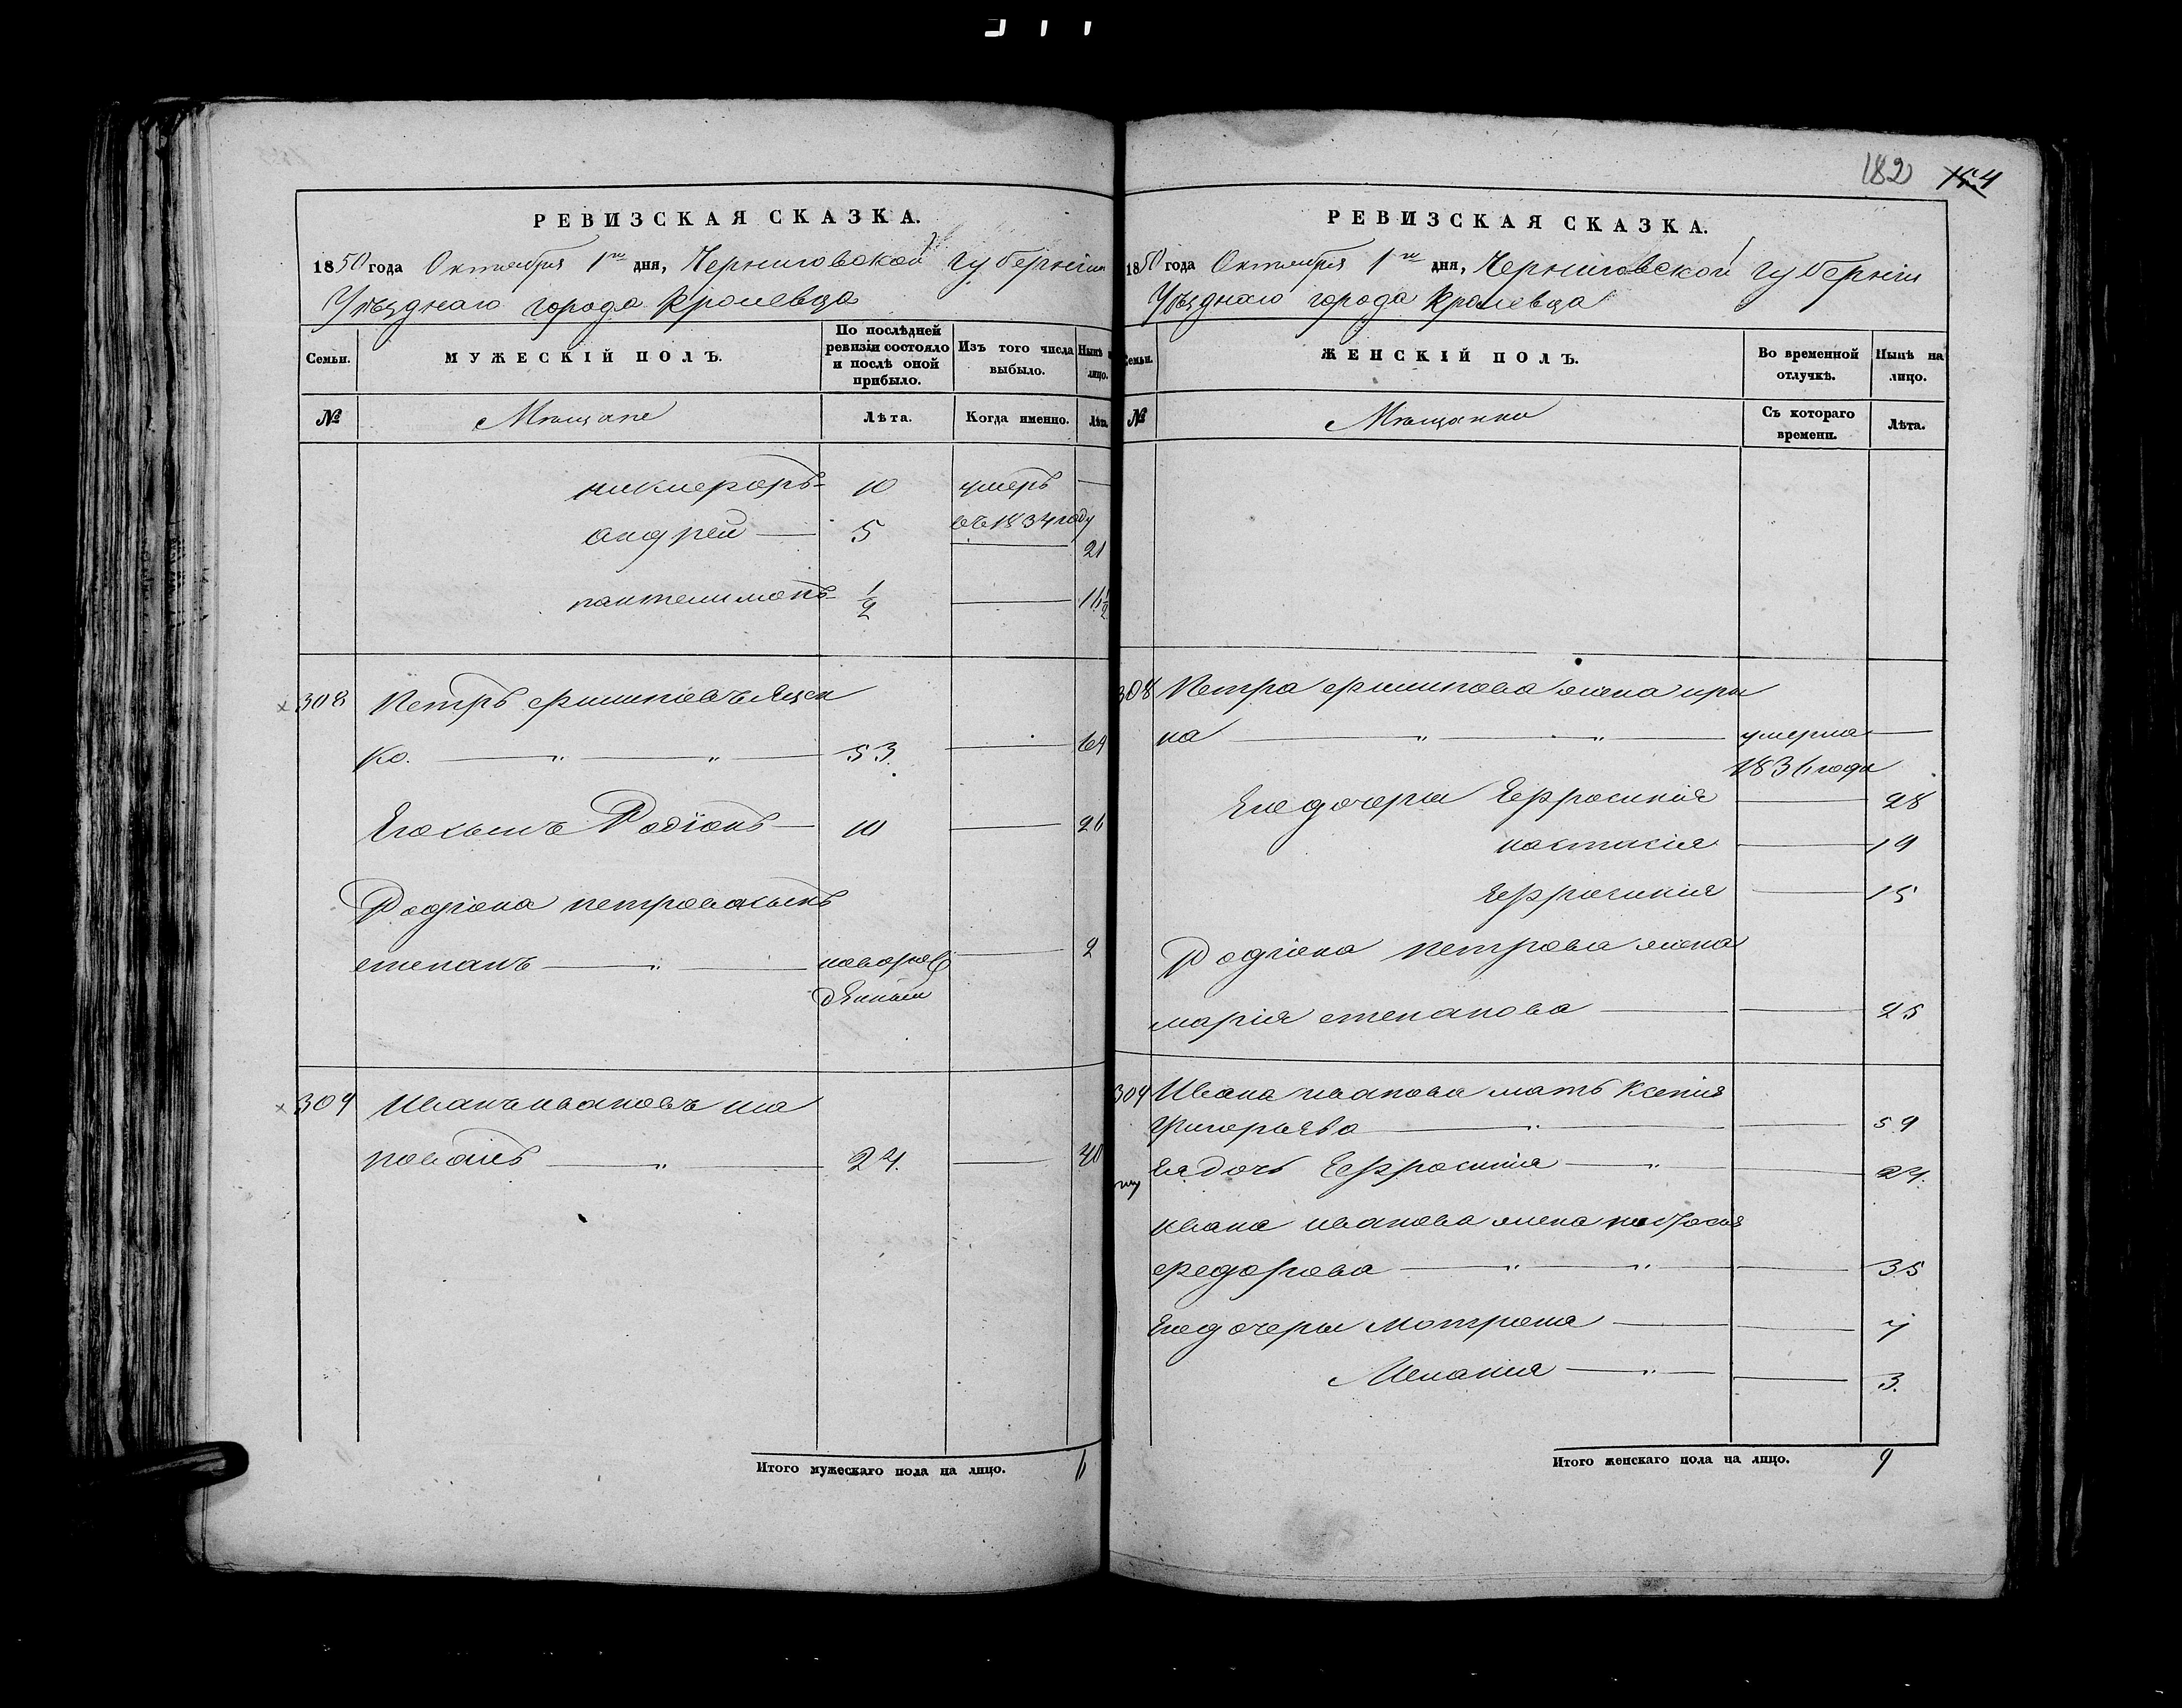 РЕВИЗСКАЯ СКАЗКА.
1850 года Октября 1го дня, Черниговской губернии
Уѣзднаго города Кролевца
Семьи. МУЖЕСКІЙ ПОЛЪ. По послѣдней ревизіи состояло и послѣ оной прибыло. Изъ того числа выбыло. Нынѣ на лицо.
№ Мѣщане Лѣта. Когда именно. Лѣта.
никифоръ 10 умеръ
въ 1834 году
андрей 5 21
пантелимонъ ½ 16½
308 Петръ филиповъ
ко. 53. 69
Его сынъ Родіонъ 10 26
Родіона петрова сынъ
степанъ новорож 2
денный
309 Иванъ ивановъ ша
повалъ 24. 40
Итого мужескаго пола на лицо. 6
182 154
РЕВИЗСКАЯ СКАЗКА.
1850 года Октября 1го дня, Черниговской губерніи
Уѣзднаго города Кролевца
Семьи. ЖЕНСКІЙ ПОЛЪ. Во временной отлучкѣ. Нынѣ на лицо.
№ Мѣщанки Съ котораго времени. Лѣта.
308 Петра филипова жена ири
на умерла
1836 года
Его дочери Ефросинія 28
настасія 19
Ефросинія 15
Родіона петрова жена
марія степанова 25
309 Ивана иванова мать Ксенія
Григорьева 59
Ея дочь Ефросинія 24.
ивана иванова жена
федорова 35
Его дочери Мотрона 7
Меланія 3.
Итого женскаго пола на лицо. 9